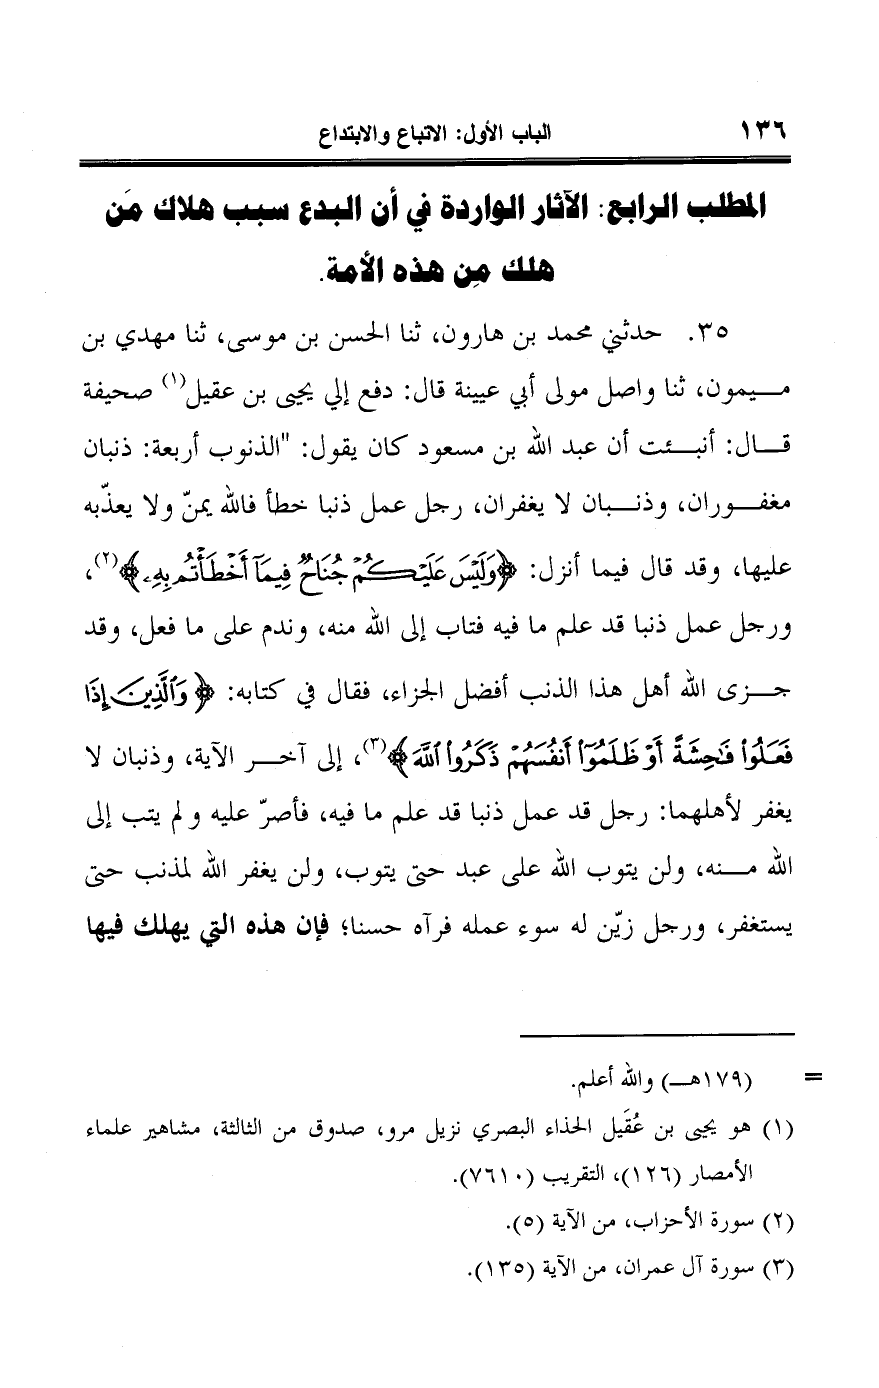 ١٣٦
الباب الأول: الاتباع والابتداع
المطلب الرابع: الآثار الواردة في أن البدع سبب هلاك مَن
هلك مِن هذه الأمة.
٣٥. حدثني محمد بن هارون، ثنا الحسن بن موسى، ثنا مهدي بن
ميمون، ثنا واصل مولى أبي عيينة قال: دفع إلي يحيى بن عقيل(١) صحيفة
قال: أنبئت أن عبد الله بن مسعود كان يقول: "الذنوب أربعة: ذنبان
مغفوران، وذنبان لا يغفران، رجل عمل ذنبا خطأ فالله يمنّ ولا يعذّبه
عليها، وقد قال فيما أنزل: ﴿وَلَيْسَ عَلَيْكُمْ جُنَاحٌ فِيمَآ أَخْطَأْتُم بِهِۦ﴾(٢)،
ورجل عمل ذنبا قد علم ما فيه فتاب إلى الله منه، وندم على ما فعل، وقد
جزى الله أهل هذا الذنب أفضل الجزاء، فقال في كتابه: ﴿وَٱلَّذِينَ إِذَا
فَعَلُوا۟ فَـٰحِشَةً أَوْ ظَلَمُوٓا۟ أَنفُسَهُمْ ذَكَرُوا۟ ٱللَّهَ﴾(٣)، إلى آخر الآية، وذنبان لا
يغفر لأهلهما: رجل قد عمل ذنبا قد علم ما فيه، فأصرّ عليه ولم يتب إلى
الله منه، ولن يتوب الله على عبد حتى يتوب، ولن يغفر الله لمذنب حتى
يستغفر، ورجل زيّن له سوء عمله فرآه حسنا؛ فإن هذه التي يهلك فيها
= (١٧٩هـ) والله أعلم.
(١) هو يحيى بن عُقَيل الحذاء البصري نزيل مرو، صدوق من الثالثة، مشاهير علماء
الأمصار (١٢٦)، التقريب (٧٦١٠).
(٢) سورة الأحزاب، من الآية (٥).
(٣) سورة آل عمران، من الآية (١٣٥).